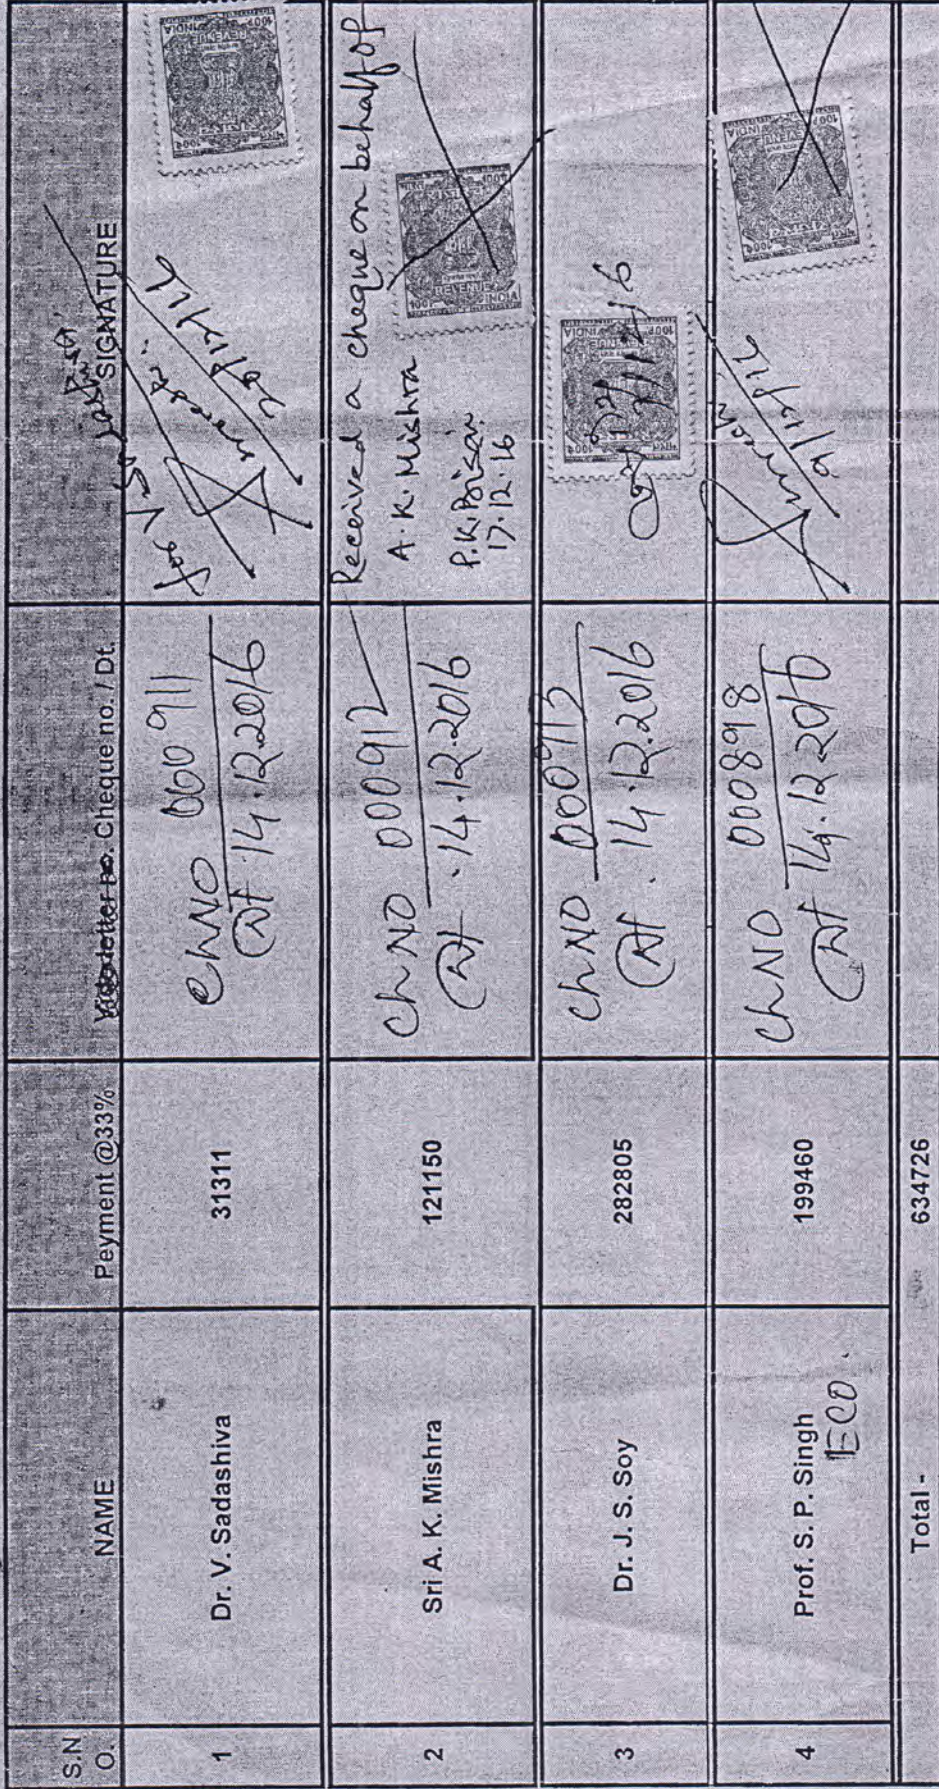 S.N O. NAME Peyment @33% Vide letter no. Cheque no. / Dt. SIGNATURE
1 Dr. V. Sadashiva 31311 ChNO 000911
Dt 14.12.2016
for V.
REVENUE
INDIA
2 Sri A. K. Mishra 121150 ChNO 000912
Dt. 14.12.2016
Received a cheque on behalf of
A. K. Mishra
17.12.16
REVENUE
INDIA
3 Dr. J. S. Soy 282805 ChNO 000913
Dt. 14.12.2016
REVENUE
INDIA
4 Prof. S. P. Singh 199460 ChNO 000898
ECO Dt 14.12.2016
REVENUE
INDIA
Total - 634726